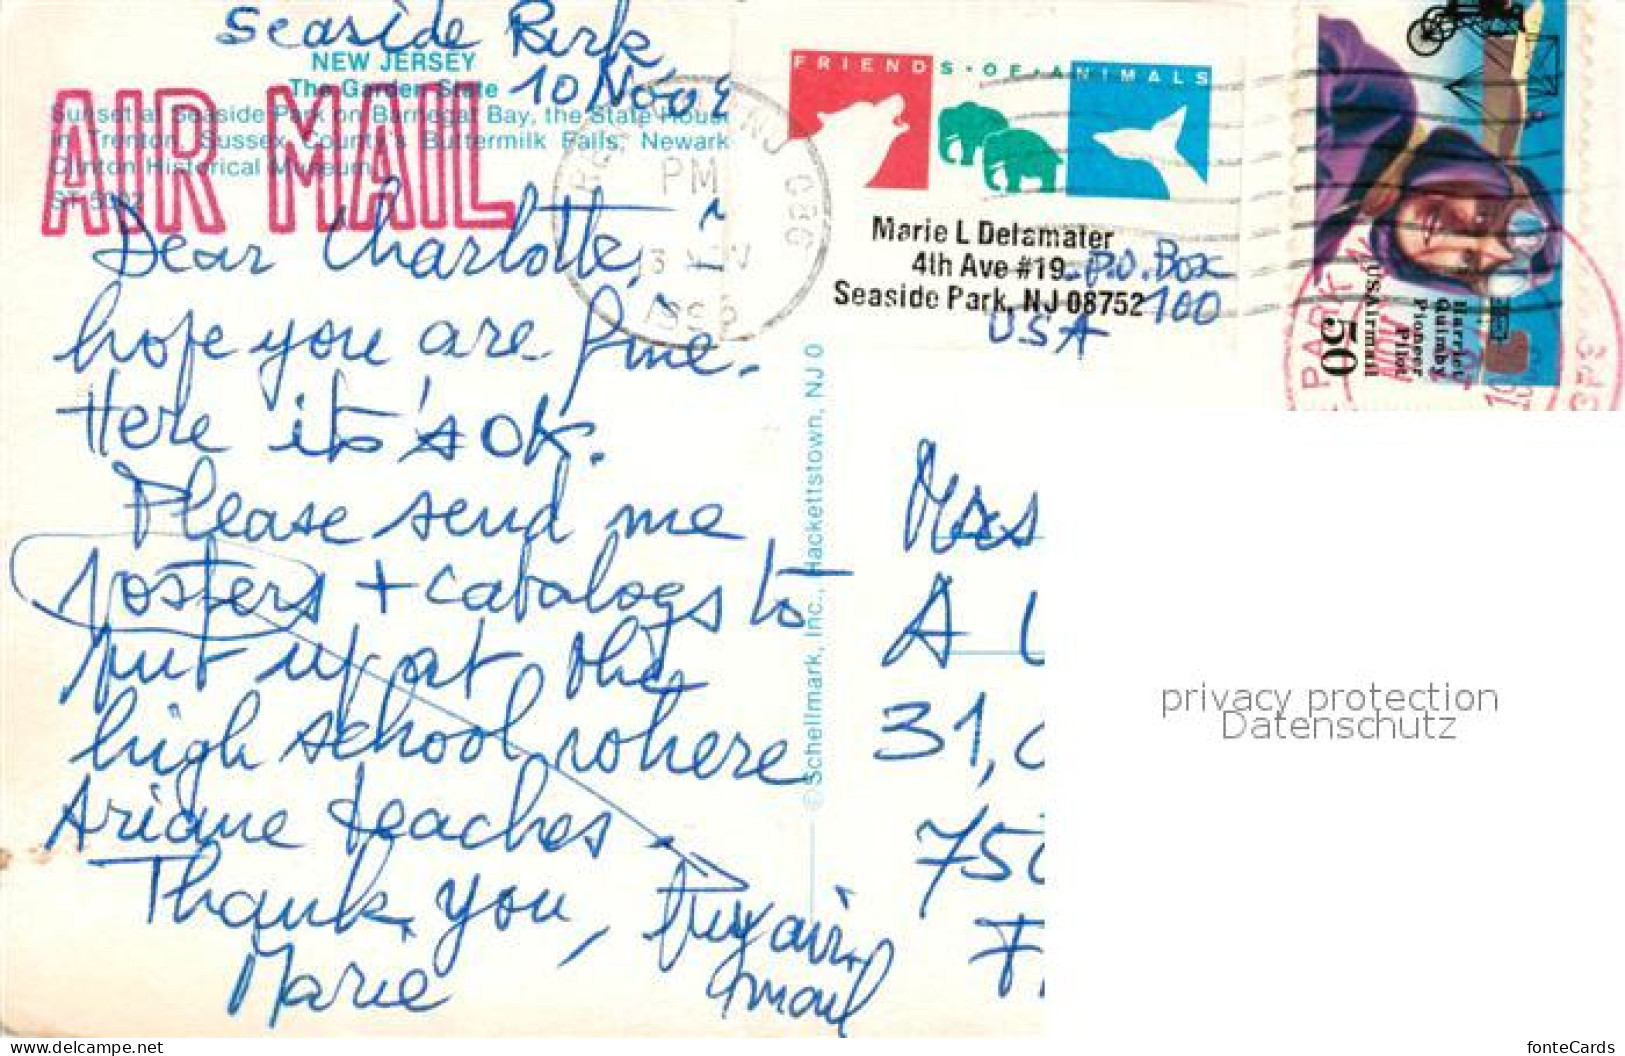 Seaside Park,
10 Nov
NEW JERSEY
The Garden State
Sunset at Seaside Park on Barnegat Bay, the State House
in Trenton, Sussex County's Buttermilk Falls, Newark
Clinton Historical Museum.
AIR MAIL
Dear Charlotte,
hope you are fine.
Here it's OK.
Please send me
posters + catalogs to
put up at the
high school where
Ariane teaches -
Thank you,
Marie
by air
mail
© Schellmark, Inc., Hackettstown, NJ 0
NJ 086
PM
13 NOV
FRIENDS·OF·ANIMALS
Marie L Delamater
4th Ave #19 P.O. Box
Seaside Park, NJ 08752 100
USA
Harriet
Quimby
Pioneer
Pilot
USAirmail
50
PARK
NOV
Mrs
A
31,
75
F
privacy protection
Datenschutz
https://www.delcampe.net
fonteCards